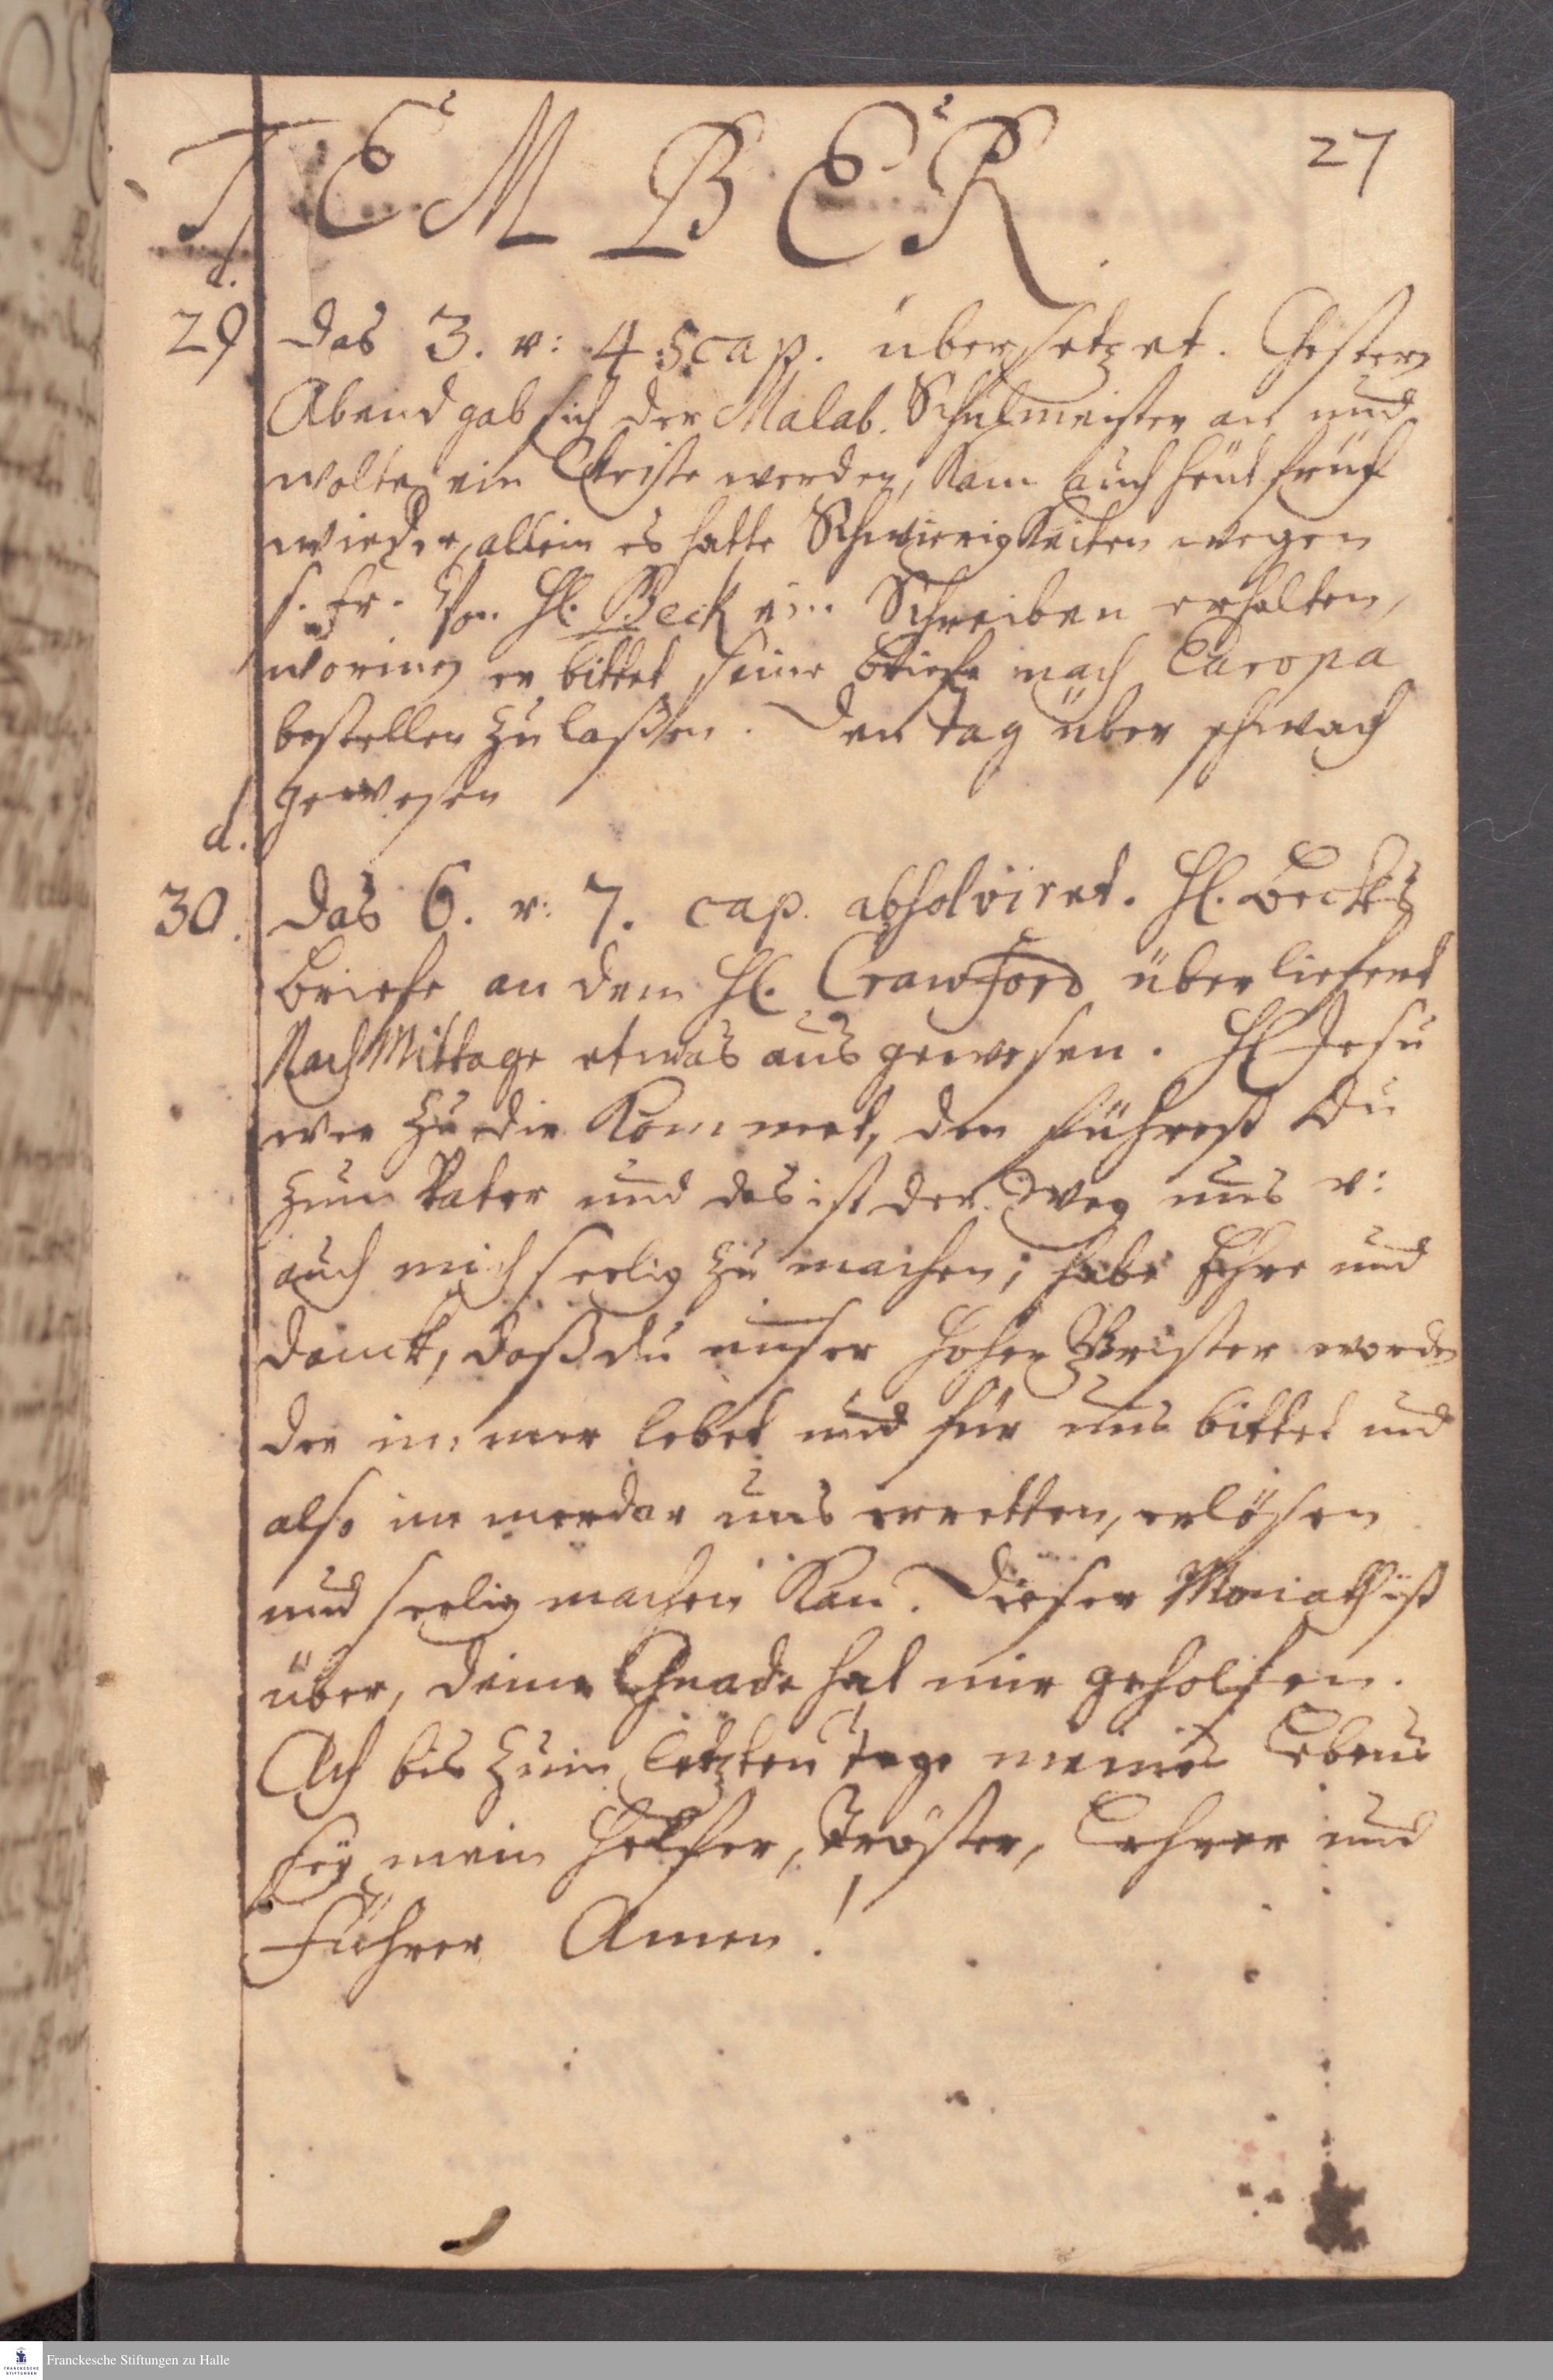 27
TEMBER
d.
29 das 3. v: 4. 5 cap. übersetzet. Gestern
Abend gab sich der Malab. Schulmeister an und
wolte ein Christe werden, kam auch heut früh
wieder, allein es hatte Schwierigkeiten wegen
s. Fr. Von H. Beck ein Schreiben erhalten,
worinn er bittet seine Briefe nach Europa
bestellen zu laßen. Den tag über schwach
gewesen
d.
30. das 6. v: 7. cap. absolviret. H. Becks
Briefe an dem H. Crawford überliefert
Nach Mittage etwas aus gewesen. H Jesu
wer zu dir kommet, den führest Du
zum Vater und das ist der Weg uns v:
auch mich seelig zu machen; habe Ehre und
danck, daß du unser Hoher Prister worden
der immer lebet und für uns bittet und
also immerdar uns erretten, erlösen
und seelig machen kan. Dieser Monath ist
über, deine Gnade hat mir geholfen.
Ach bis zum letzten tage meines Lebens
sey mein Helfer, Tröster, Lehrer und
Führer Amen!
FRANCKESCHE STIFTUNGEN
Franckesche Stiftungen zu Halle